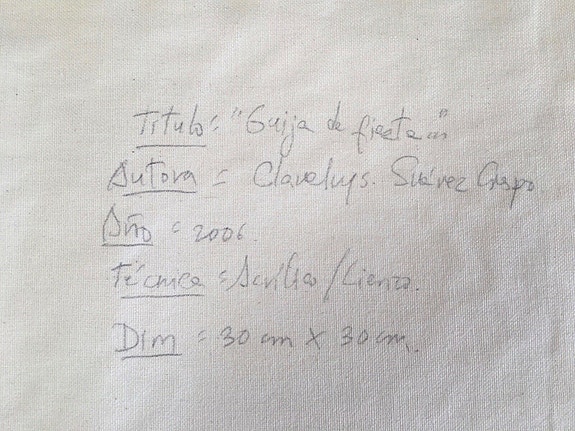 Título: "Guija de fiesta"
Autora = Clavelys. Suárez Crespo
Año = 2006.
Técnica = Acrílico/Lienzo.
Dim = 30 cm x 30 cm.